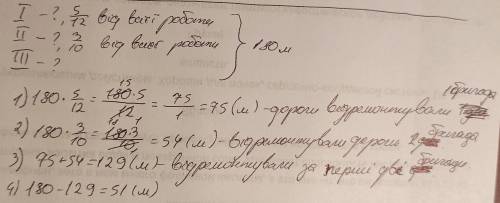 I - ?, 5/12 від всієї роботи
II - ?, 3/10 від всієї роботи } 180 м
III - ?
1) 180 · 5/12 = 180·5/12 = 75/1 = 75 (м) - дороги відремонтували 1 бригада
2) 180 · 3/10 = 180·3/10 = 54 (м) - відремонтували дороги 2 бригада
3) 75 + 54 = 129 (м) - відремонтували за перші дві бригади
4) 180 - 129 = 51 (м)